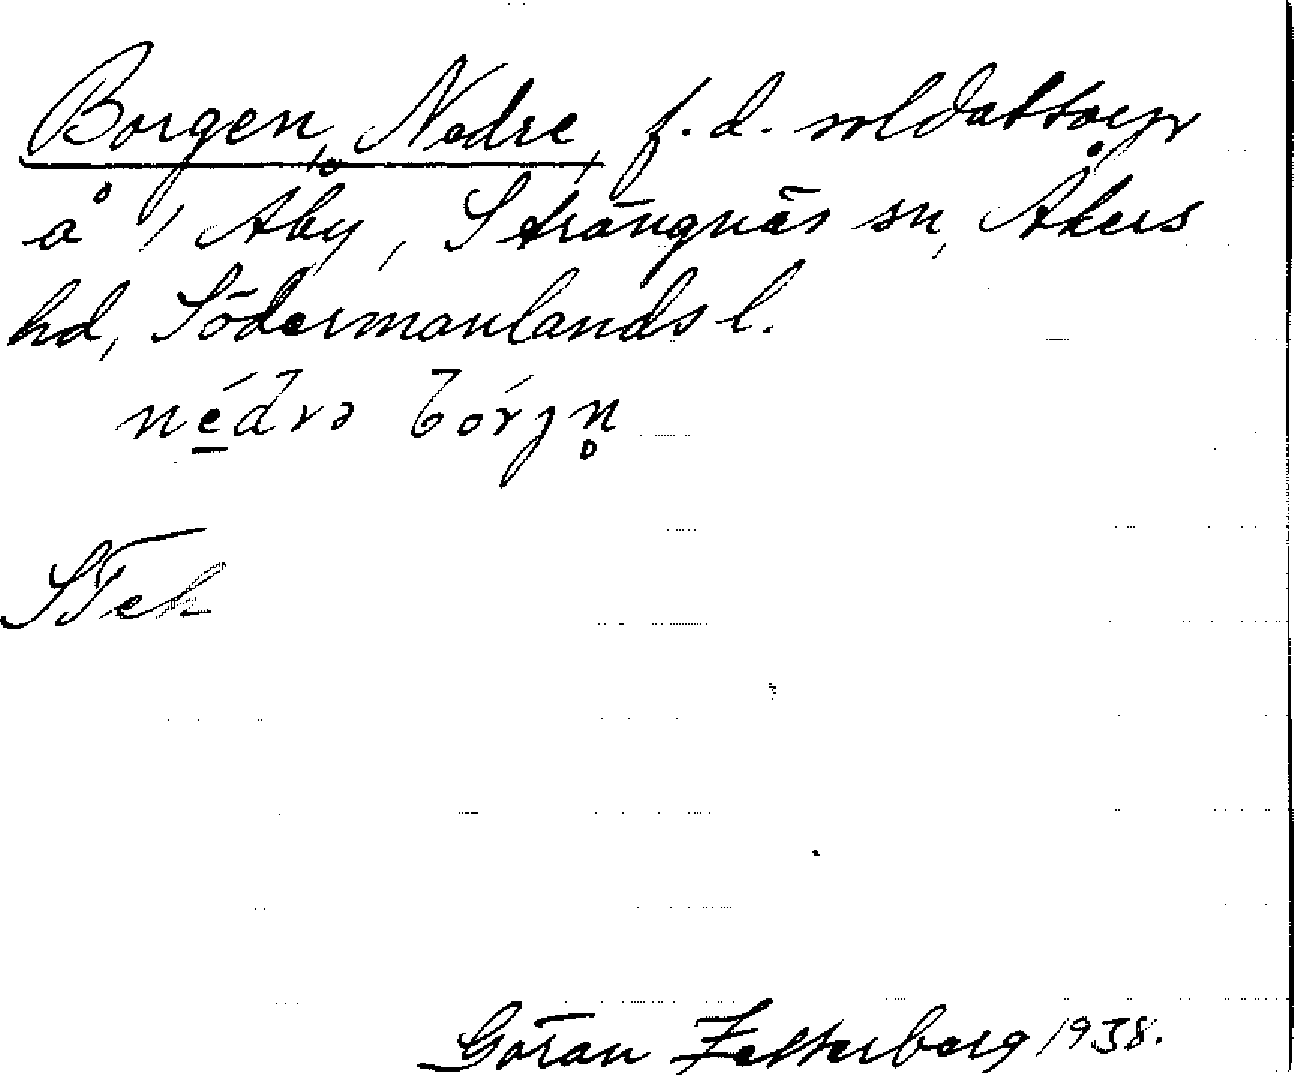 Borgen, Nedre, f.d. soldattorp
å 1 Åby, Strängnäs sn, Åkers
hd, Södermanlands l.
nédrə bórjn̥
STeh
Göran Zetterberg 1938.